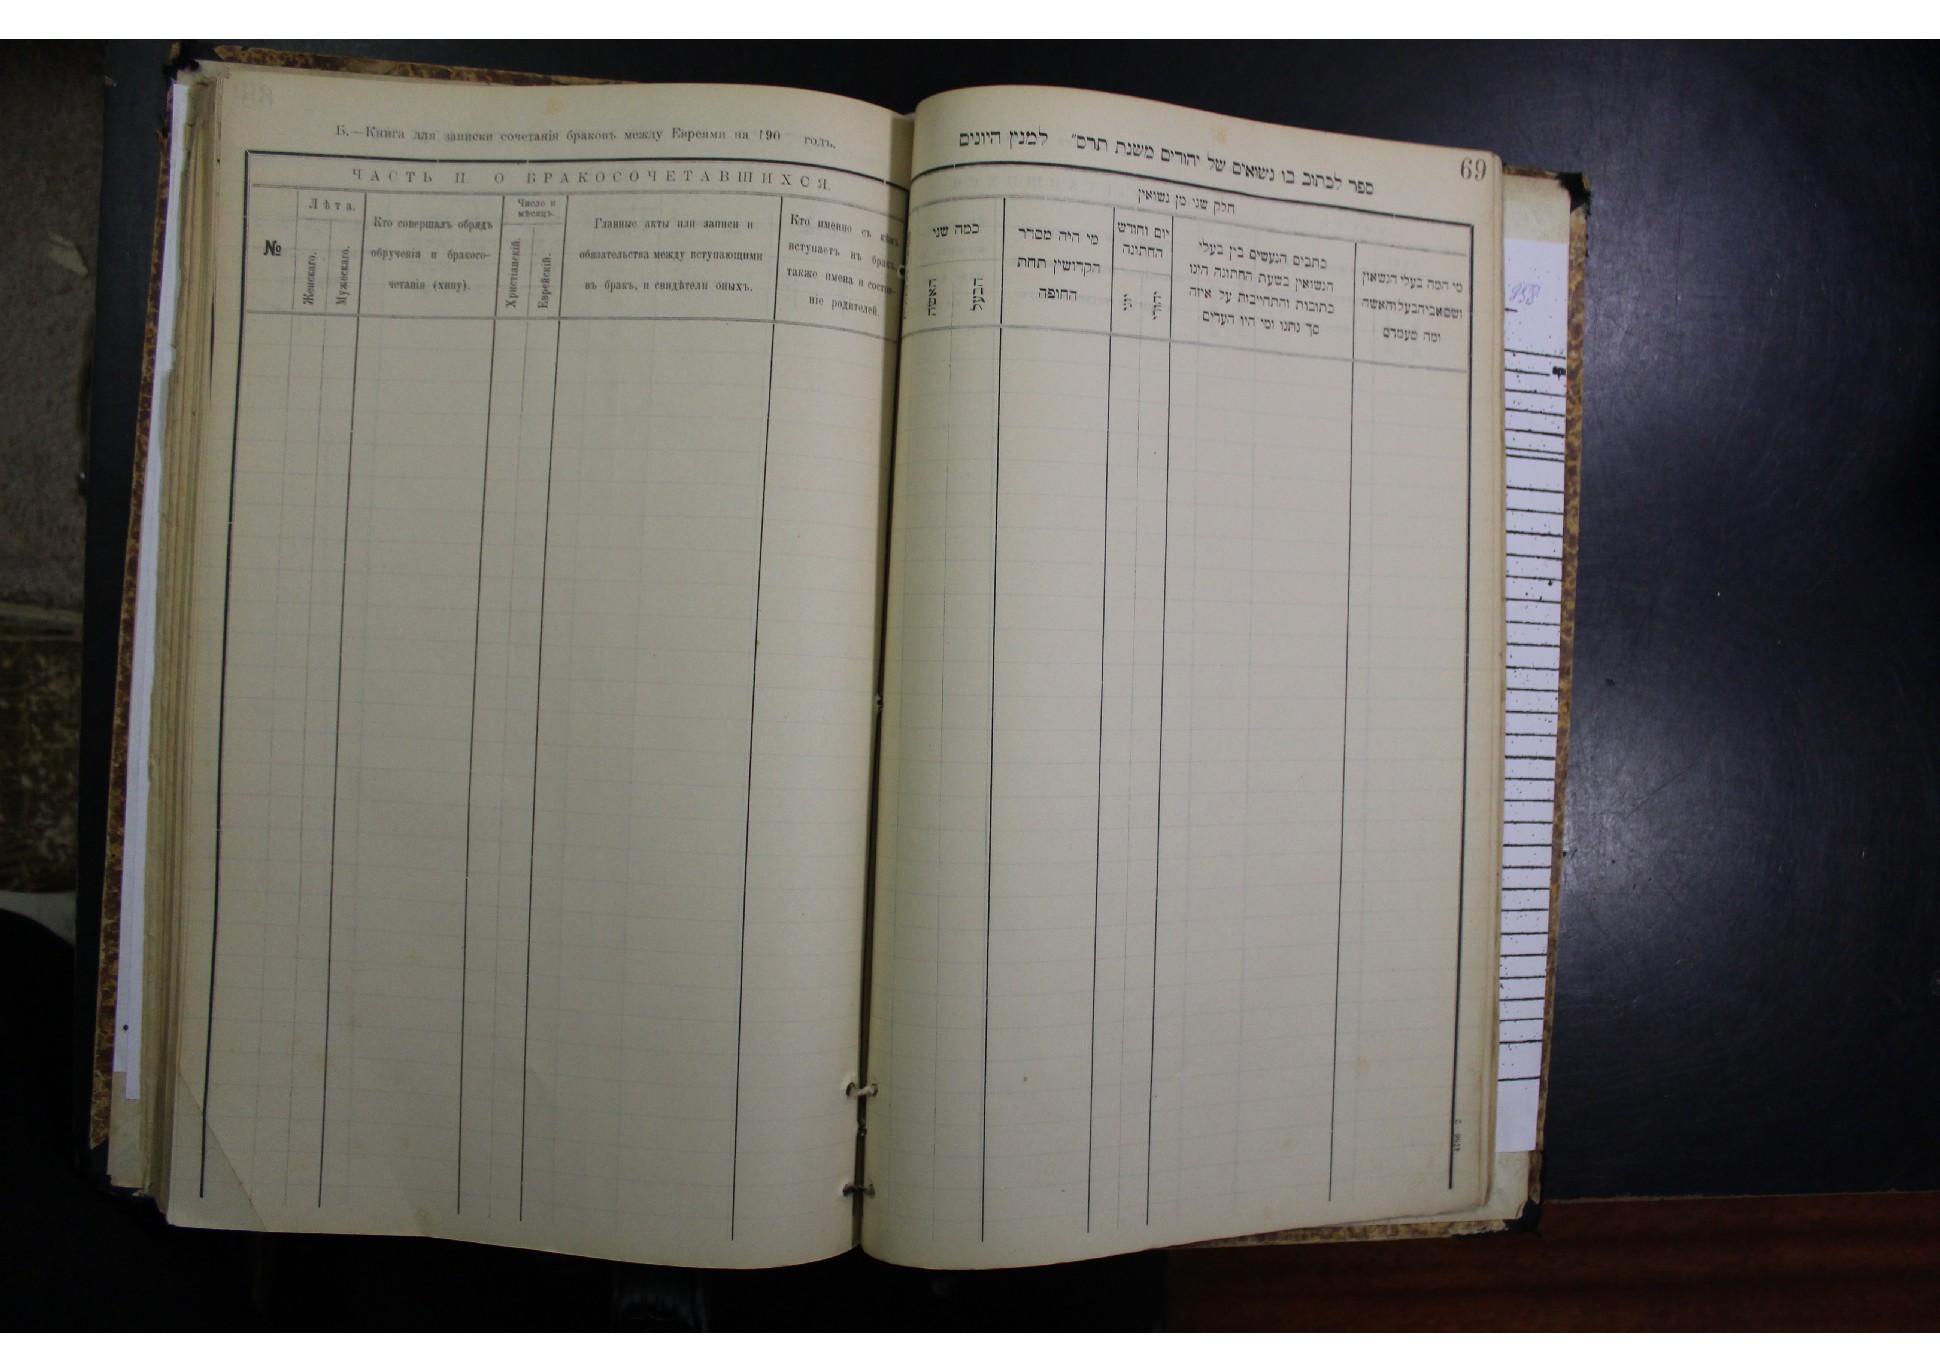 Б.—Книга для записки сочетанія браковъ между Евреями на 190 годъ.
ЧАСТЬ II. О БРАКОСОЧЕТАВШИХСЯ.
№
Лѣта.
Женскаго.
Мужескаго.
Кто совершалъ обрядъ
обрученія и бракосо-
четанія (хипу).
Число и
мѣсяцъ.
Христіанскій.
Еврейскій.
Главные акты или записи и
обязательства между вступающими
въ бракъ, и свидѣтели оныхъ.
Кто именно съ кѣмъ
вступаетъ въ бракъ,
также имена и состоя-
ніе родителей.
69
ספר לכתוב בו נשואים של יהודים משנת תרס״ למנין היונים
חלק שני מן נשואין
מי המה בעלי הנשואין
ושם אביהבעל והאשה
ומה מעמדם
כתבים הנעשים בין בעלי
הנשואין בשעת החתונה היינו
כתובות והתחייבות על איזה
סך נתנו ומי היו העדים
יום וחודש
החתונה
יהודי
יוני
מי היה מסדר
הקדושין תחת
החופה
כמה שני
הבעל
האשה